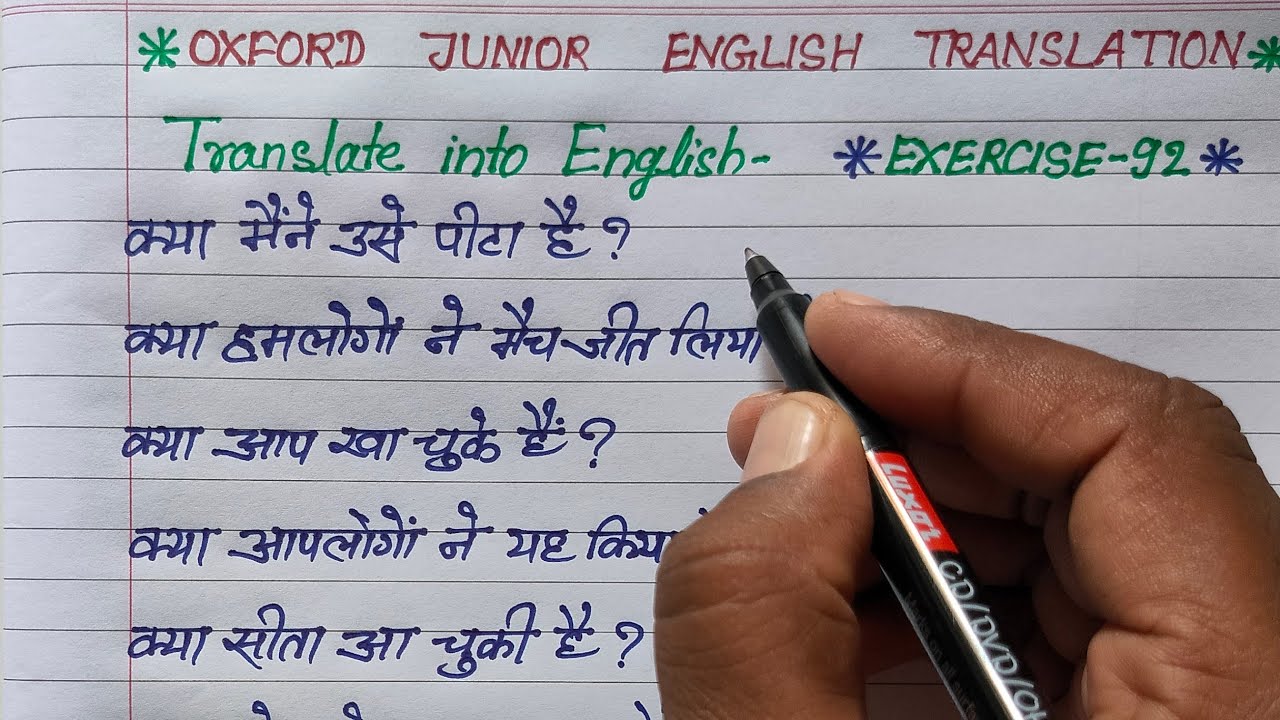 *OXFORD JUNIOR ENGLISH TRANSLATION*
Translate into English- *EXERCISE-92*
क्या मैंने उसे पीटा है?
क्या हमलोगों ने मैच जीत लिया
क्या आप खा चुके हैं?
क्या आपलोगों ने यह किया
क्या सीता आ चुकी है?
Luxor
CD/DVD/OH